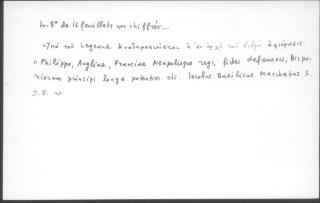 In-8° de 16 feuillets non chiffrés...
«Ὑπὸ τοῦ Legrand ἀναδημοσιεύεται ἡ ἐν ἀρχῇ τοῦ ἀφιέρωσις:
« Philippo, Angliae, Franciae Neapolisque regi, fidei defensori, Hispa-
niarum principi longe potentiss. etc. Iacobus Basilicus Marchetus S.
D. P. »